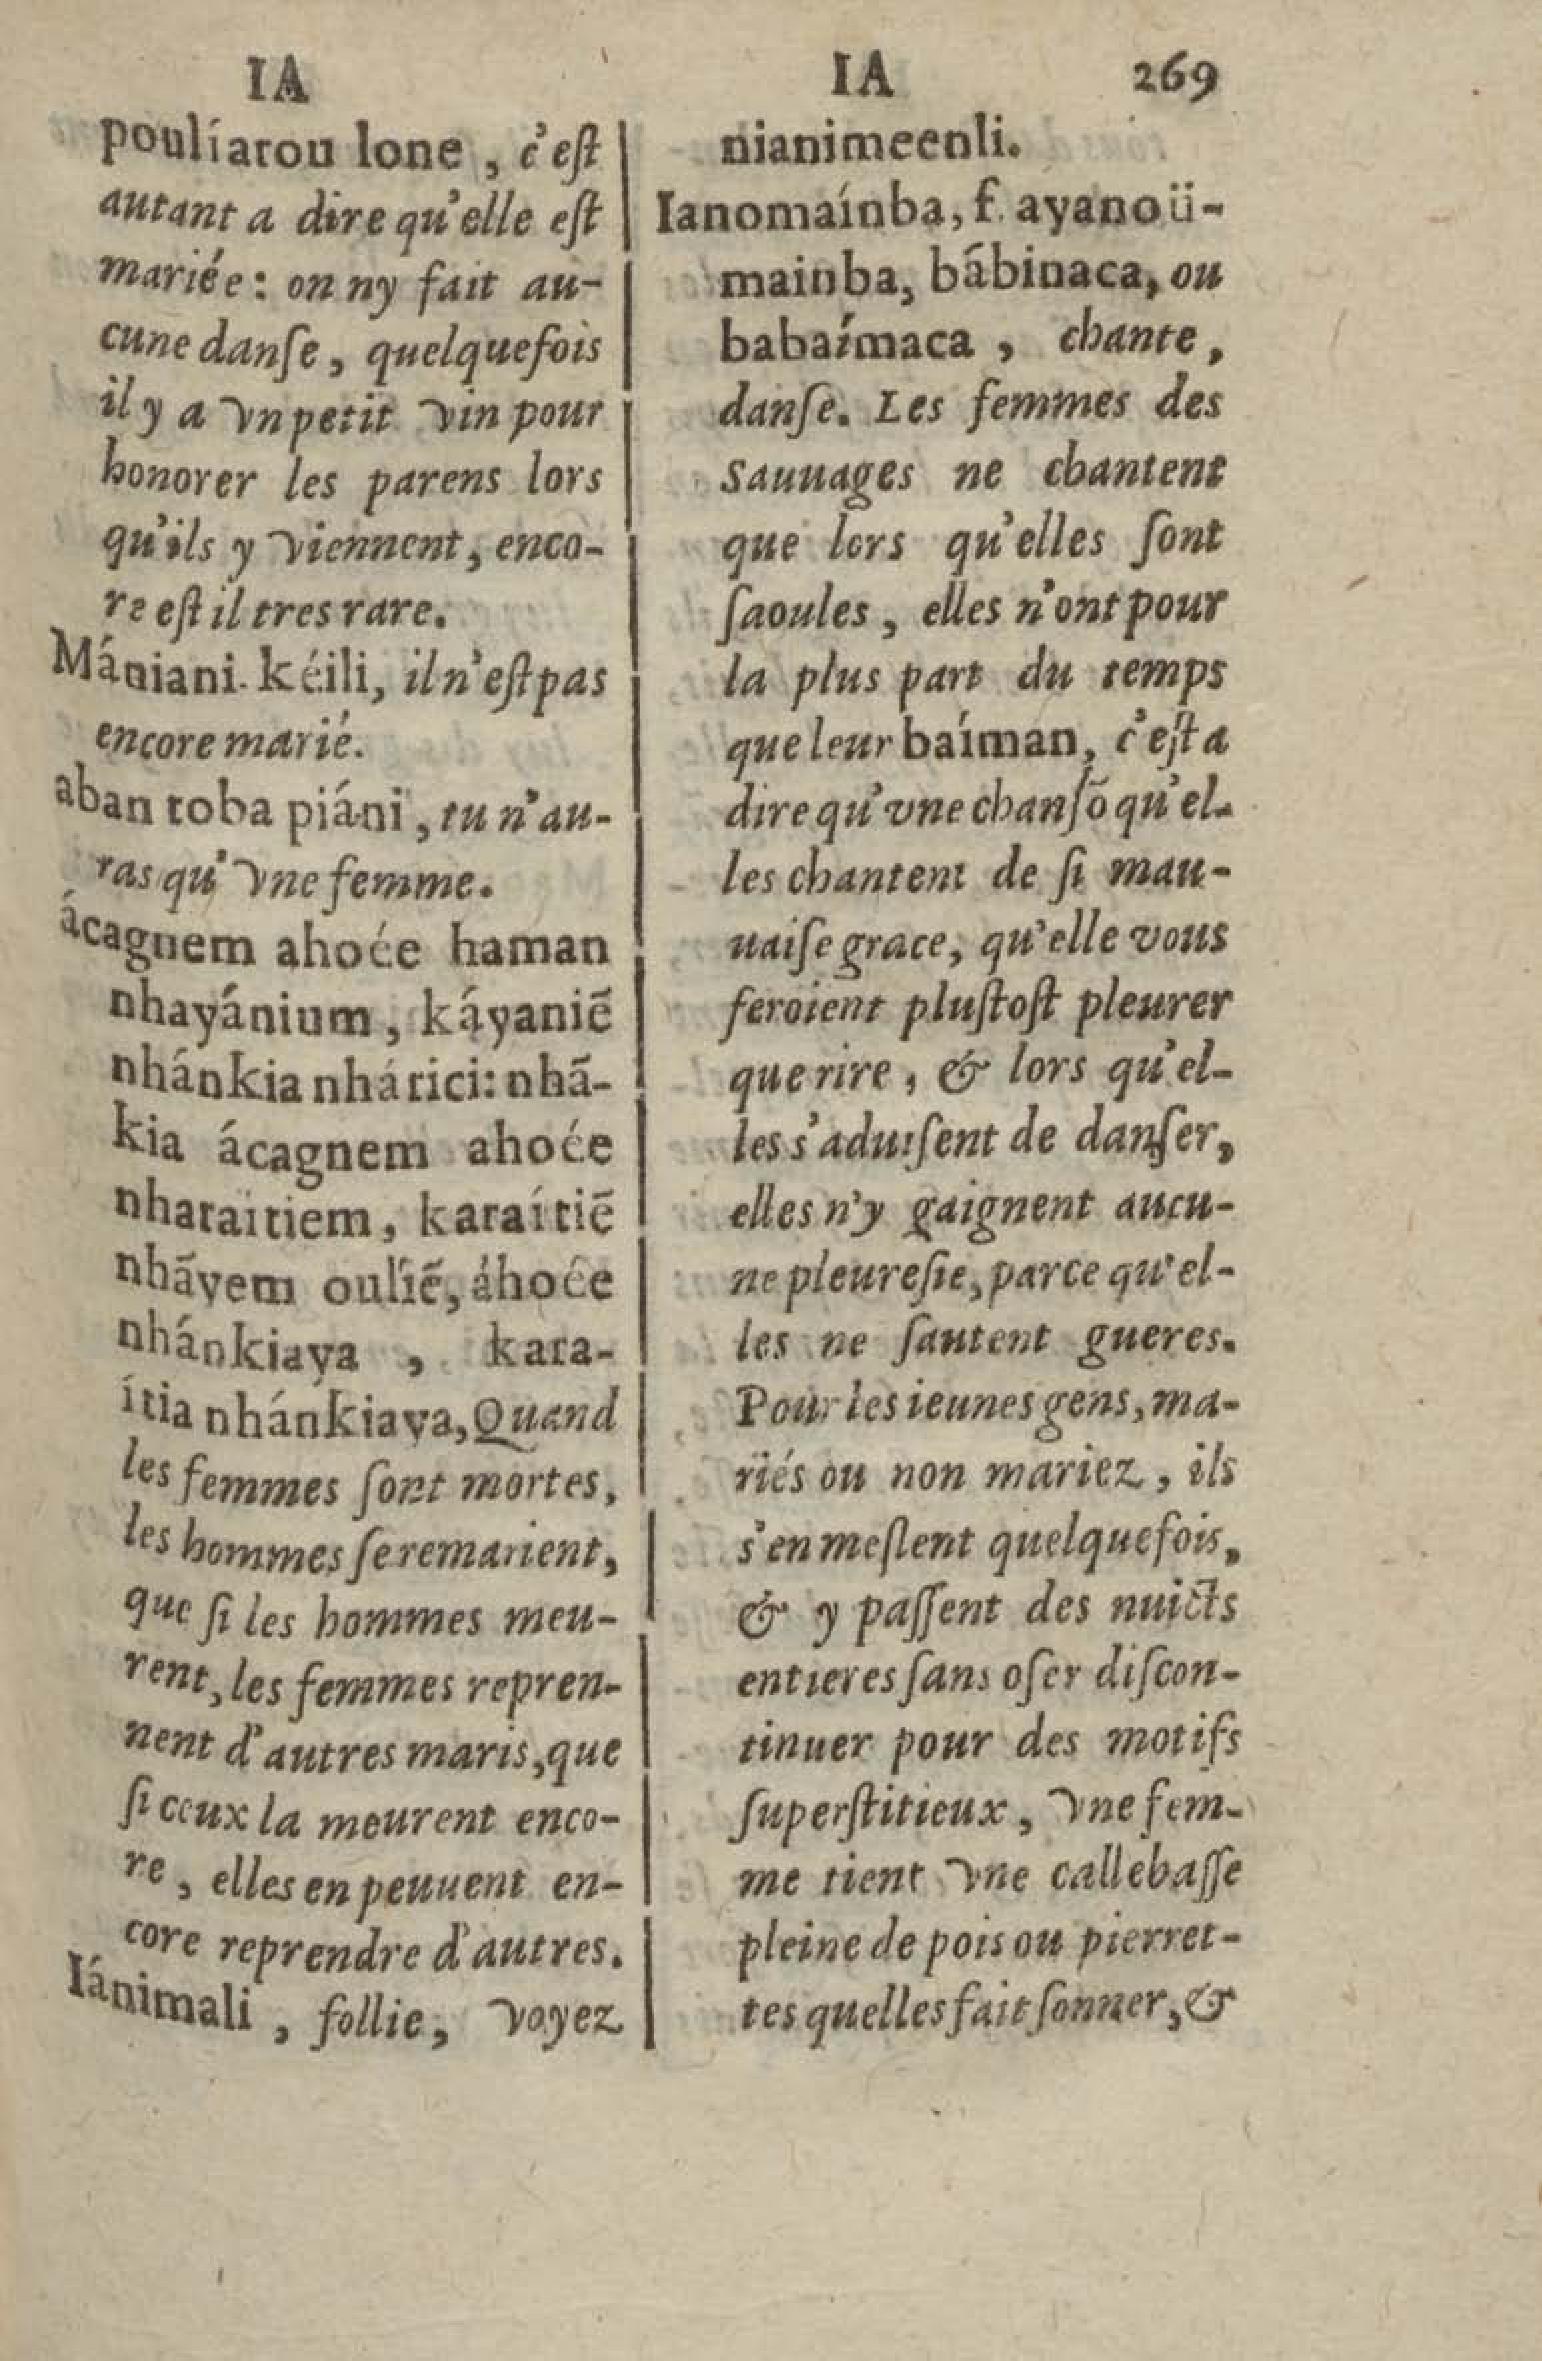 IA
poulíarou lone, c'eſt
autant a dire qu'elle eſt
mariée: on ny fait au-
cune danſe, quelquefois
il y a vn petit vin pour
honorer les parens lors
qu'ils y viennent, enco-
re eſt il tres rare.
Mániani kéili, il n'eſt pas
encore marié.
aban toba piáni, tu n'au-
ras qu'vne femme.
ácagnem ahoée haman
nhayánium, káyaniẽ
nhánkia nhárici: nhã-
kia ácagnem ahoée
nharaïtiem, karaítiẽ
nhãyem oulíẽ, áhoée
nhánkiaya, kara-
ítia nhánkiaya, Quand
les femmes ſont mortes,
les hommes ſe remarient,
que ſi les hommes meu-
rent, les femmes repren-
nent d'autres maris, que
ſi ceux la meurent enco-
re, elles en peuuent en-
core reprendre d'autres.
Iánimali, follie, voyez
IA 269
nianimeenli.
Ianomaínba, f. ayanoü-
mainba, bábinaca, ou
babaímaca, chante,
danſe. Les femmes des
Sauuages ne chantent
que lors qu'elles ſont
ſaoules, elles n'ont pour
la plus part du temps
que leur baíman, c'eſt a
dire qu'vne chanſõ qu'el-
les chantent de ſi mau-
uaiſe grace, qu'elle vous
feroient pluſtoſt pleurer
que rire, & lors qu'el-
les s'aduiſent de danſer,
elles n'y gaignent aucu-
ne pleureſie, parce qu'el-
les ne ſautent gueres.
Pour les ieunes gens, ma-
riés ou non mariez, ils
s'en meſlent quelquefois,
& y paſſent des nuicts
entieres ſans oſer diſcon-
tinuer pour des motifs
ſuperſtitieux, vne fem-
me tient vne callebaſſe
pleine de pois ou pierret-
tes quelles fait ſonner, &